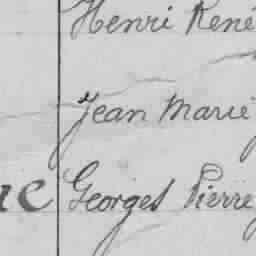 Henri René
Jean Marie
ne Georges Pierre